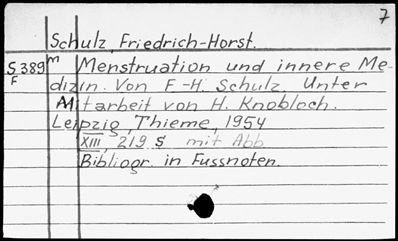 7
Schulz, Friedrich-Horst.
S 389 m Menstruation und innere Me-
F dizin. Von F.-H. Schulz Unter
Mitarbeit von H. Knobloch.
Leipzig, Thieme, 1954
XIII, 219 S mit Abb
Bibliogr. in Fussnoten.